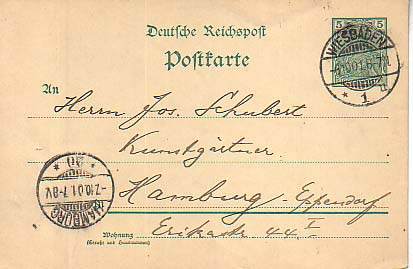 Deutsche Reichspost
5 5
Postkarte
WIESBADEN
1
An
Herrn Jos. Schubert
Kunstgärtner
Hamburg - Eppendorf
Erikastr 44 I
HAMBURG
7.10.01.7-8V.
Wohnung
(Straße und Hausnummer)